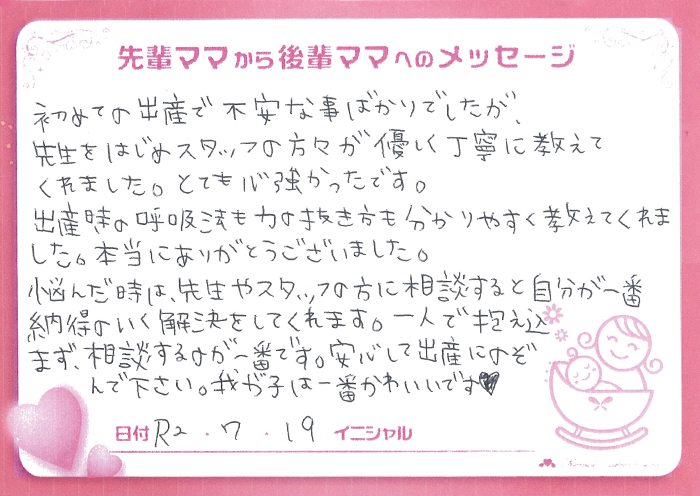 先輩ママから後輩ママへのメッセージ
初めての出産で不安な事ばかりでしたが、
先生をはじめスタッフの方々が優しく丁寧に教えて
くれました。とても心強かったです。
出産時の呼吸法も力の抜き方も分かりやすく教えてくれま
した。本当にありがとうございました。
悩んだ時は、先生やスタッフの方に相談すると自分が一番
納得のいく解決をしてくれます。一人で抱え込
まず、相談するのが一番です。安心して出産にのぞ
んで下さい。我が子は一番かわいいです♥
日付 R2・7・19 イニシャル